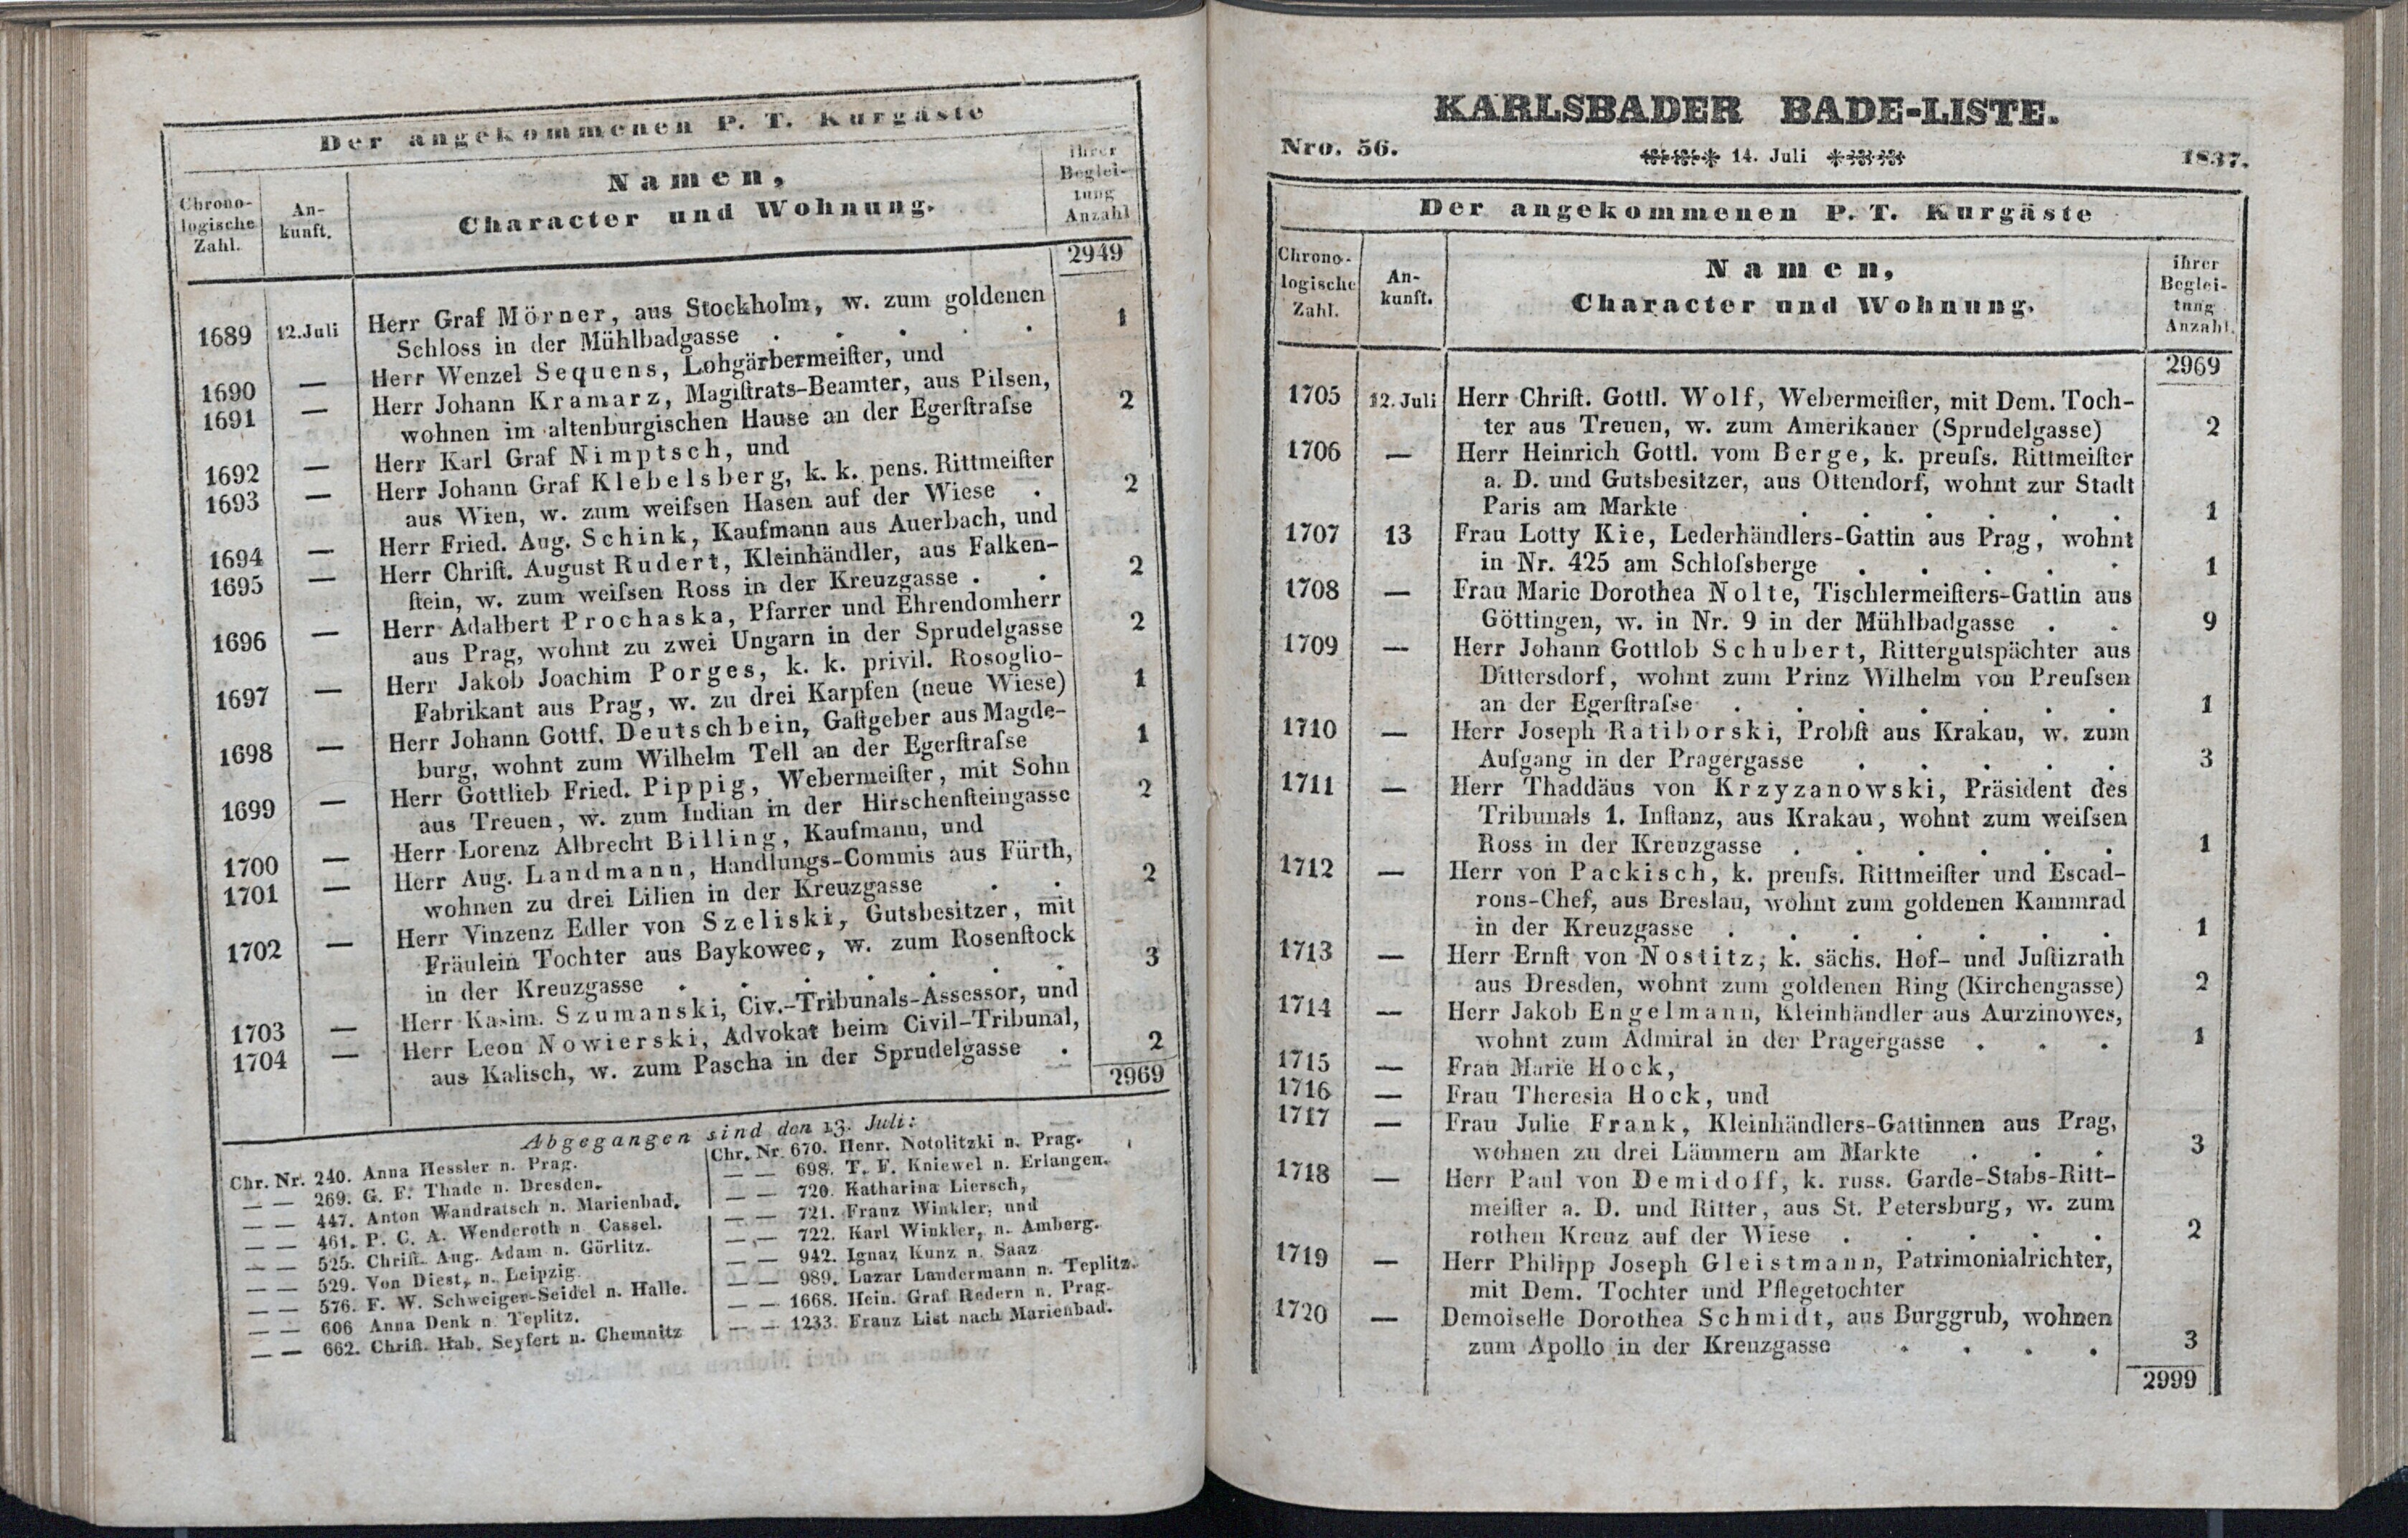 Der angekommenen P. T. Kurgäste
Chrono-
logische
Zahl.
An-
kunft.
Namen,
Character und Wohnung.
ihrer
Beglei-
tung
Anzahl
2949
1689 12.Juli Herr Graf Mörner, aus Stockholm, w. zum goldenen
Schloss in der Mühlbadgasse . . . . . 1
1690 — Herr Wenzel Sequens, Lohgärbermeiſter, und
1691 — Herr Johann Kramarz, Magiſtrats-Beamter, aus Pilsen,
wohnen im altenburgischen Hause an der Egerſtraſse 2
1692 — Herr Karl Graf Nimptsch, und
1693 — Herr Johann Graf Klebelsberg, k. k. pens. Rittmeiſter
aus Wien, w. zum weiſsen Hasen auf der Wiese . 2
1694 — Herr Fried. Aug. Schink, Kaufmann aus Auerbach, und
1695 — Herr Chriſt. August Rudert, Kleinhändler, aus Falken-
ſtein, w. zum weiſsen Ross in der Kreuzgasse . . 2
1696 — Herr Adalbert Prochaska, Pfarrer und Ehrendomherr
aus Prag, wohnt zu zwei Ungarn in der Sprudelgasse 2
1697 — Herr Jakob Joachim Porges, k. k. privil. Rosoglio-
Fabrikant aus Prag, w. zu drei Karpfen (neue Wiese) 1
1698 — Herr Johann Gottf. Deutschbein, Gaſtgeber aus Magde-
burg, wohnt zum Wilhelm Tell an der Egerſtraſse 1
1699 — Herr Gottlieb Fried. Pippig, Webermeiſter, mit Sohn
aus Treuen, w. zum Indian in der Hirschenſteingasse 2
1700 — Herr Lorenz Albrecht Billing, Kaufmann, und
1701 — Herr Aug. Landmann, Handlungs-Commis aus Fürth,
wohnen zu drei Lilien in der Kreuzgasse . . 2
1702 — Herr Vinzenz Edler von Szeliski, Gutsbesitzer, mit
Fräulein Tochter aus Baykowec, w. zum Rosenſtock
in der Kreuzgasse . . . . . . . 3
1703 — Herr Kasim. Szumanski, Civ.-Tribunals-Assessor, und
1704 — Herr Leon Nowierski, Advokat beim Civil-Tribunal,
aus Kalisch, w. zum Pascha in der Sprudelgasse . 2
2969
Abgegangen sind den 13. Juli:
Chr. Nr. 240. Anna Hessler n. Prag.
— — 269. G. F. Thade n. Dresden.
— — 447. Anton Wandratsch n. Marienbad.
— — 461. P. C. A. Wenderoth n Cassel.
— — 525. Chriſt. Aug. Adam n. Görlitz.
— — 529. Von Diest, n. Leipzig.
— — 576. F. W. Schweiger-Seidel n. Halle.
— — 606 Anna Denk n Teplitz.
— — 662. Chriſt. Hab. Seyfert n. Chemnitz
Chr. Nr. 670. Henr. Notolitzki n. Prag.
— — 698. T. F. Kniewel n. Erlangen.
— — 720. Katharina Liersch,
— — 721. Franz Winkler, und
— — 722. Karl Winkler, n. Amberg.
— — 942. Ignaz Kunz n. Saaz
— — 989. Lazar Landermann n. Teplitz.
— — 1668. Hein. Graf Redern n. Prag.
— — 1233. Franz List nach Marienbad.
KARLSBADER BADE-LISTE.
Nro. 56. 14. Juli 1837.
Der angekommenen P. T. Kurgäste
Chrono-
logische
Zahl.
An-
kunft.
Namen,
Character und Wohnung.
ihrer
Beglei-
tung
Anzahl.
2969
1705 12. Juli Herr Chriſt. Gottl. Wolf, Webermeiſter, mit Dem. Toch-
ter aus Treuen, w. zum Amerikaner (Sprudelgasse) 2
1706 — Herr Heinrich Gottl. vom Berge, k. preuſs. Rittmeiſter
a. D. und Gutsbesitzer, aus Ottendorf, wohnt zur Stadt
Paris am Markte . . . . . . 1
1707 13 Frau Lotty Kie, Lederhändlers-Gattin aus Prag, wohnt
in Nr. 425 am Schloſsberge . . . . . 1
1708 — Frau Marie Dorothea Nolte, Tischlermeiſters-Gattin aus
Göttingen, w. in Nr. 9 in der Mühlbadgasse . . 9
1709 — Herr Johann Gottlob Schubert, Rittergutspächter aus
Dittersdorf, wohnt zum Prinz Wilhelm von Preuſsen
an der Egerſtraſse . . . . . . . 1
1710 — Herr Joseph Ratiborski, Probſt aus Krakau, w. zum
Aufgang in der Pragergasse . . . . . 3
1711 — Herr Thaddäus von Krzyzanowski, Präsident des
Tribunals 1. Inſtanz, aus Krakau, wohnt zum weiſsen
Ross in der Kreuzgasse . . . . . . 1
1712 — Herr von Packisch, k. preuſs. Rittmeiſter und Escad-
rons-Chef, aus Breslau, wohnt zum goldenen Kammrad
in der Kreuzgasse . . . . . . . 1
1713 — Herr Ernſt von Nostitz, k. sächs. Hof- und Juſtizrath
aus Dresden, wohnt zum goldenen Ring (Kirchengasse) 2
1714 — Herr Jakob Engelmann, Kleinhändler aus Aurzinowes,
wohnt zum Admiral in der Pragergasse . . . 1
1715 — Frau Marie Hock,
1716 — Frau Theresia Hock, und
1717 — Frau Julie Frank, Kleinhändlers-Gattinnen aus Prag,
wohnen zu drei Lämmern am Markte . . . 3
1718 — Herr Paul von Demidoff, k. russ. Garde-Stabs-Ritt-
meiſter a. D. und Ritter, aus St. Petersburg, w. zum
rothen Kreuz auf der Wiese . . . . . 2
1719 — Herr Philipp Joseph Gleistmann, Patrimonialrichter,
mit Dem. Tochter und Pflegetochter
1720 — Demoiselle Dorothea Schmidt, aus Burggrub, wohnen
zum Apollo in der Kreuzgasse . . . . 3
2999